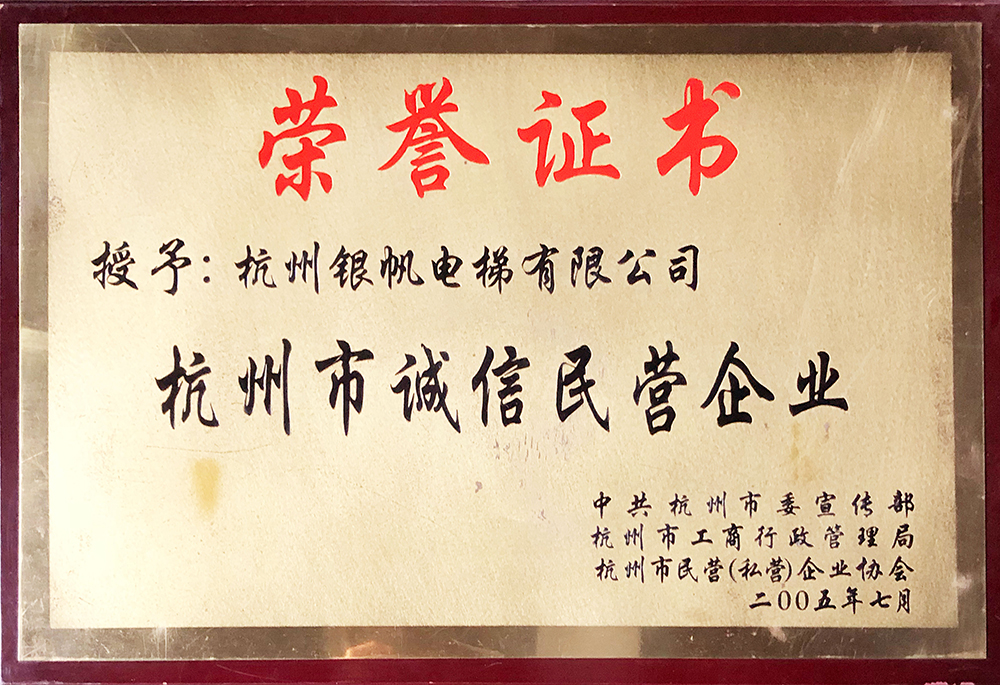 荣誉证书
授予：杭州银帆电梯有限公司
杭州市诚信民营企业
中共杭州市委宣传部
杭州市工商行政管理局
杭州市民营(私营)企业协会
二00五年七月